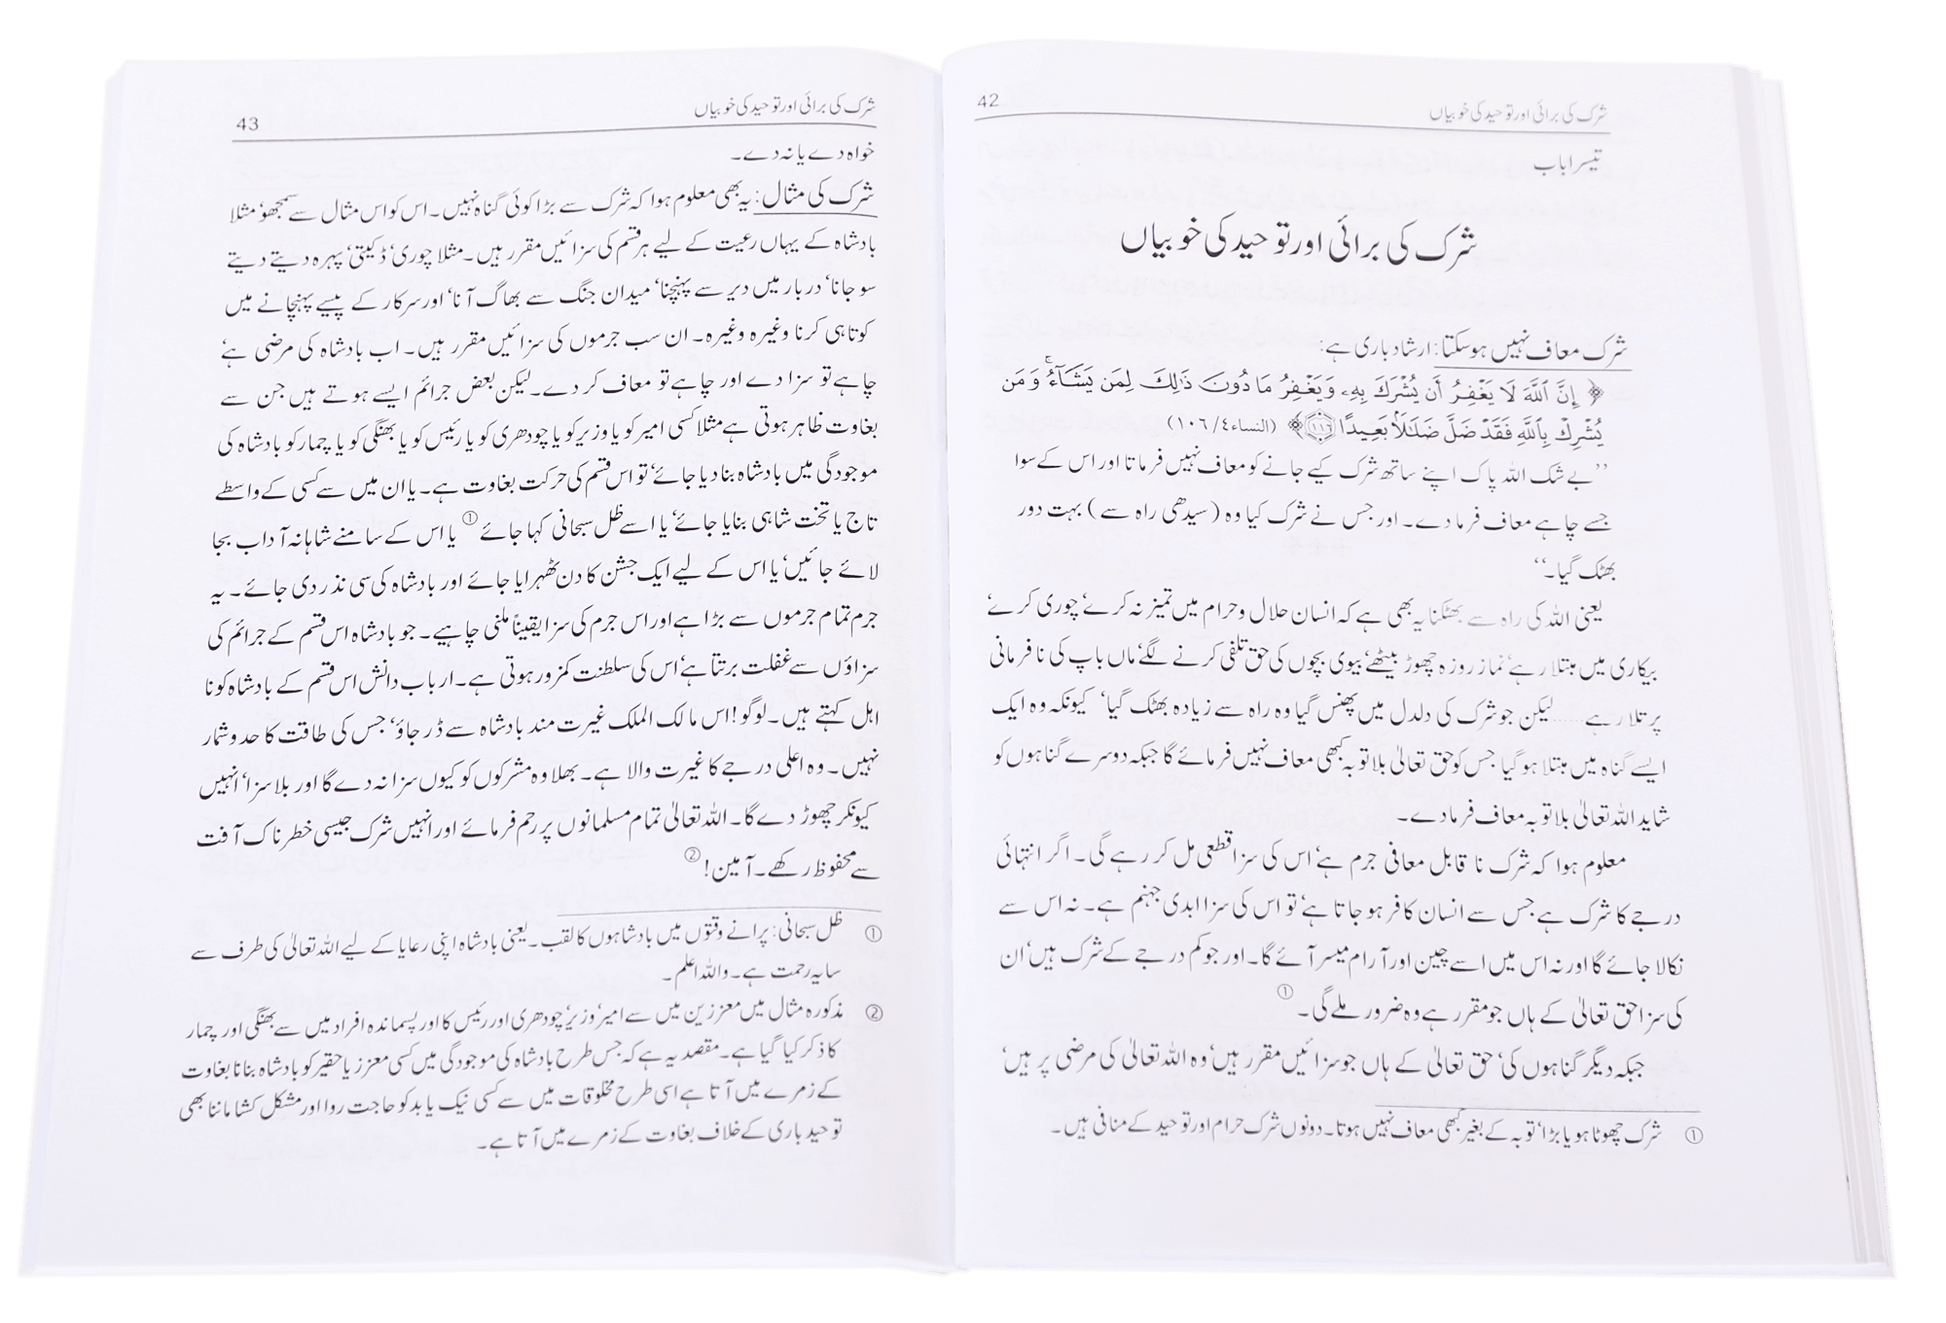 شرک کی برائی اور توحید کی خوبیاں 42
تیسرا باب
شرک کی برائی اور توحید کی خوبیاں
شرک معاف نہیں ہو سکتا: ارشاد باری ہے:
﴿ إِنَّ ٱللَّهَ لَا يَغْفِرُ أَن يُشْرَكَ بِهِۦ وَيَغْفِرُ مَا دُونَ ذَٰلِكَ لِمَن يَشَآءُ ۚ وَمَن
يُشْرِكْ بِٱللَّهِ فَقَدْ ضَلَّ ضَلَٰلًۢا بَعِيدًا ۝١١٦﴾ (النساء٤/١٠٦)
’’بے شک اللہ پاک اپنے ساتھ شرک کیے جانے کو معاف نہیں فرماتا اور اس کے سوا
جسے چاہے معاف فرما دے۔ اور جس نے شرک کیا وہ (سیدھی راہ سے) بہت دور
بھٹک گیا۔‘‘
یعنی اللہ کی راہ سے بھٹکنا یہ بھی ہے کہ انسان حلال و حرام میں تمیز نہ کرے‘ چوری کرے‘
بیکاری میں مبتلا رہے‘ نماز روزہ چھوڑ بیٹھے‘ بیوی بچوں کی حق تلفی کرنے لگے‘ ماں باپ کی نافرمانی
پر تلا رہے ...... لیکن جو شرک کی دلدل میں پھنس گیا وہ راہ سے زیادہ بھٹک گیا‘ کیونکہ وہ ایک
ایسے گناہ میں مبتلا ہو گیا جس کو حق تعالیٰ بلا توبہ کبھی معاف نہیں فرمائے گا جبکہ دوسرے گناہوں کو
شاید اللہ تعالیٰ بلا توبہ معاف فرما دے۔
معلوم ہوا کہ شرک نا قابل معافی جرم ہے‘ اس کی سزا قطعی مل کر رہے گی۔ اگر انتہائی
درجے کا شرک ہے جس سے انسان کافر ہو جاتا ہے‘ تو اس کی سزا ابدی جہنم ہے۔ نہ اس سے
نکالا جائے گا اور نہ اس میں اسے چین اور آرام میسر آئے گا۔ اور جو کم درجے کے شرک ہیں‘ ان
کی سزا حق تعالیٰ کے ہاں جو مقرر ہے وہ ضرور ملے گی۔ ①
جبکہ دیگر گناہوں کی‘ حق تعالیٰ کے ہاں جو سزائیں مقرر ہیں‘ وہ اللہ تعالیٰ کی مرضی پر ہیں‘
① شرک چھوٹا ہو یا بڑا‘ توبہ کے بغیر کبھی معاف نہیں ہوتا۔ دونوں شرک حرام اور توحید کے منافی ہیں۔
شرک کی برائی اور توحید کی خوبیاں 43
خواہ دے یا نہ دے۔
شرک کی مثال: یہ بھی معلوم ہوا کہ شرک سے بڑا کوئی گناہ نہیں۔ اس کو اس مثال سے سمجھو‘ مثلا
بادشاہ کے یہاں رعیت کے لیے ہر قسم کی سزائیں مقرر ہیں۔ مثلا چوری‘ ڈکیتی‘ پہرہ دیتے دیتے
سو جانا‘ دربار میں دیر سے پہنچنا‘ میدان جنگ سے بھاگ آنا‘ اور سرکار کے پیسے پہنچانے میں
کوتاہی کرنا وغیرہ وغیرہ۔ ان سب جرموں کی سزائیں مقرر ہیں۔ اب بادشاہ کی مرضی ہے‘
چاہے تو سزا دے اور چاہے تو معاف کر دے۔ لیکن بعض جرائم ایسے ہوتے ہیں جن سے
بغاوت ظاہر ہوتی ہے مثلا کسی امیر کو یا وزیر کو یا چودھری کو یا رئیس کو یا بھنگی کو یا چمار کو بادشاہ کی
موجودگی میں بادشاہ بنا دیا جائے‘ تو اس قسم کی حرکت بغاوت ہے۔ یا ان میں سے کسی کے واسطے
تاج یا تخت شاہی بنایا جائے‘ یا اسے ظل سبحانی کہا جائے ① یا اس کے سامنے شاہانہ آداب بجا
لائے جائیں‘ یا اس کے لیے ایک جشن کا دن ٹھہرایا جائے اور بادشاہ کی سی نذر دی جائے۔ یہ
جرم تمام جرموں سے بڑا ہے اور اس جرم کی سزا یقیناً ملنی چاہیے۔ جو بادشاہ اس قسم کے جرائم کی
سزاؤں سے غفلت برتتا ہے‘ اس کی سلطنت کمزور ہوتی ہے۔ ارباب دانش اس قسم کے بادشاہ کو نا
اہل کہتے ہیں۔ لوگو! اس مالک الملک غیرت مند بادشاہ سے ڈر جاؤ‘ جس کی طاقت کا حد و شمار
نہیں۔ وہ اعلی درجے کا غیرت والا ہے۔ بھلا وہ مشرکوں کو کیوں سزا نہ دے گا اور بلا سزا‘ انہیں
کیونکر چھوڑ دے گا۔ اللہ تعالیٰ تمام مسلمانوں پر رحم فرمائے اور انہیں شرک جیسی خطرناک آفت
سے محفوظ رکھے۔ آمین! ②
① ظل سبحانی: پرانے وقتوں میں بادشاہوں کا لقب۔ یعنی بادشاہ اپنی رعایا کے لیے اللہ تعالیٰ کی طرف سے
سایہ رحمت ہے۔ واللہ اعلم۔
② مذکورہ مثال میں معززین میں سے امیر‘ وزیر‘ چودھری اور رئیس کا اور پسماندہ افراد میں سے بھنگی اور چمار
کا ذکر کیا گیا ہے۔ مقصد یہ ہے کہ جس طرح بادشاہ کی موجودگی میں کسی معزز یا حقیر کو بادشاہ بنانا بغاوت
کے زمرے میں آتا ہے اسی طرح مخلوقات میں سے کسی نیک یا بد کو حاجت روا اور مشکل کشا ماننا بھی
توحید باری کے خلاف بغاوت کے زمرے میں آتا ہے۔